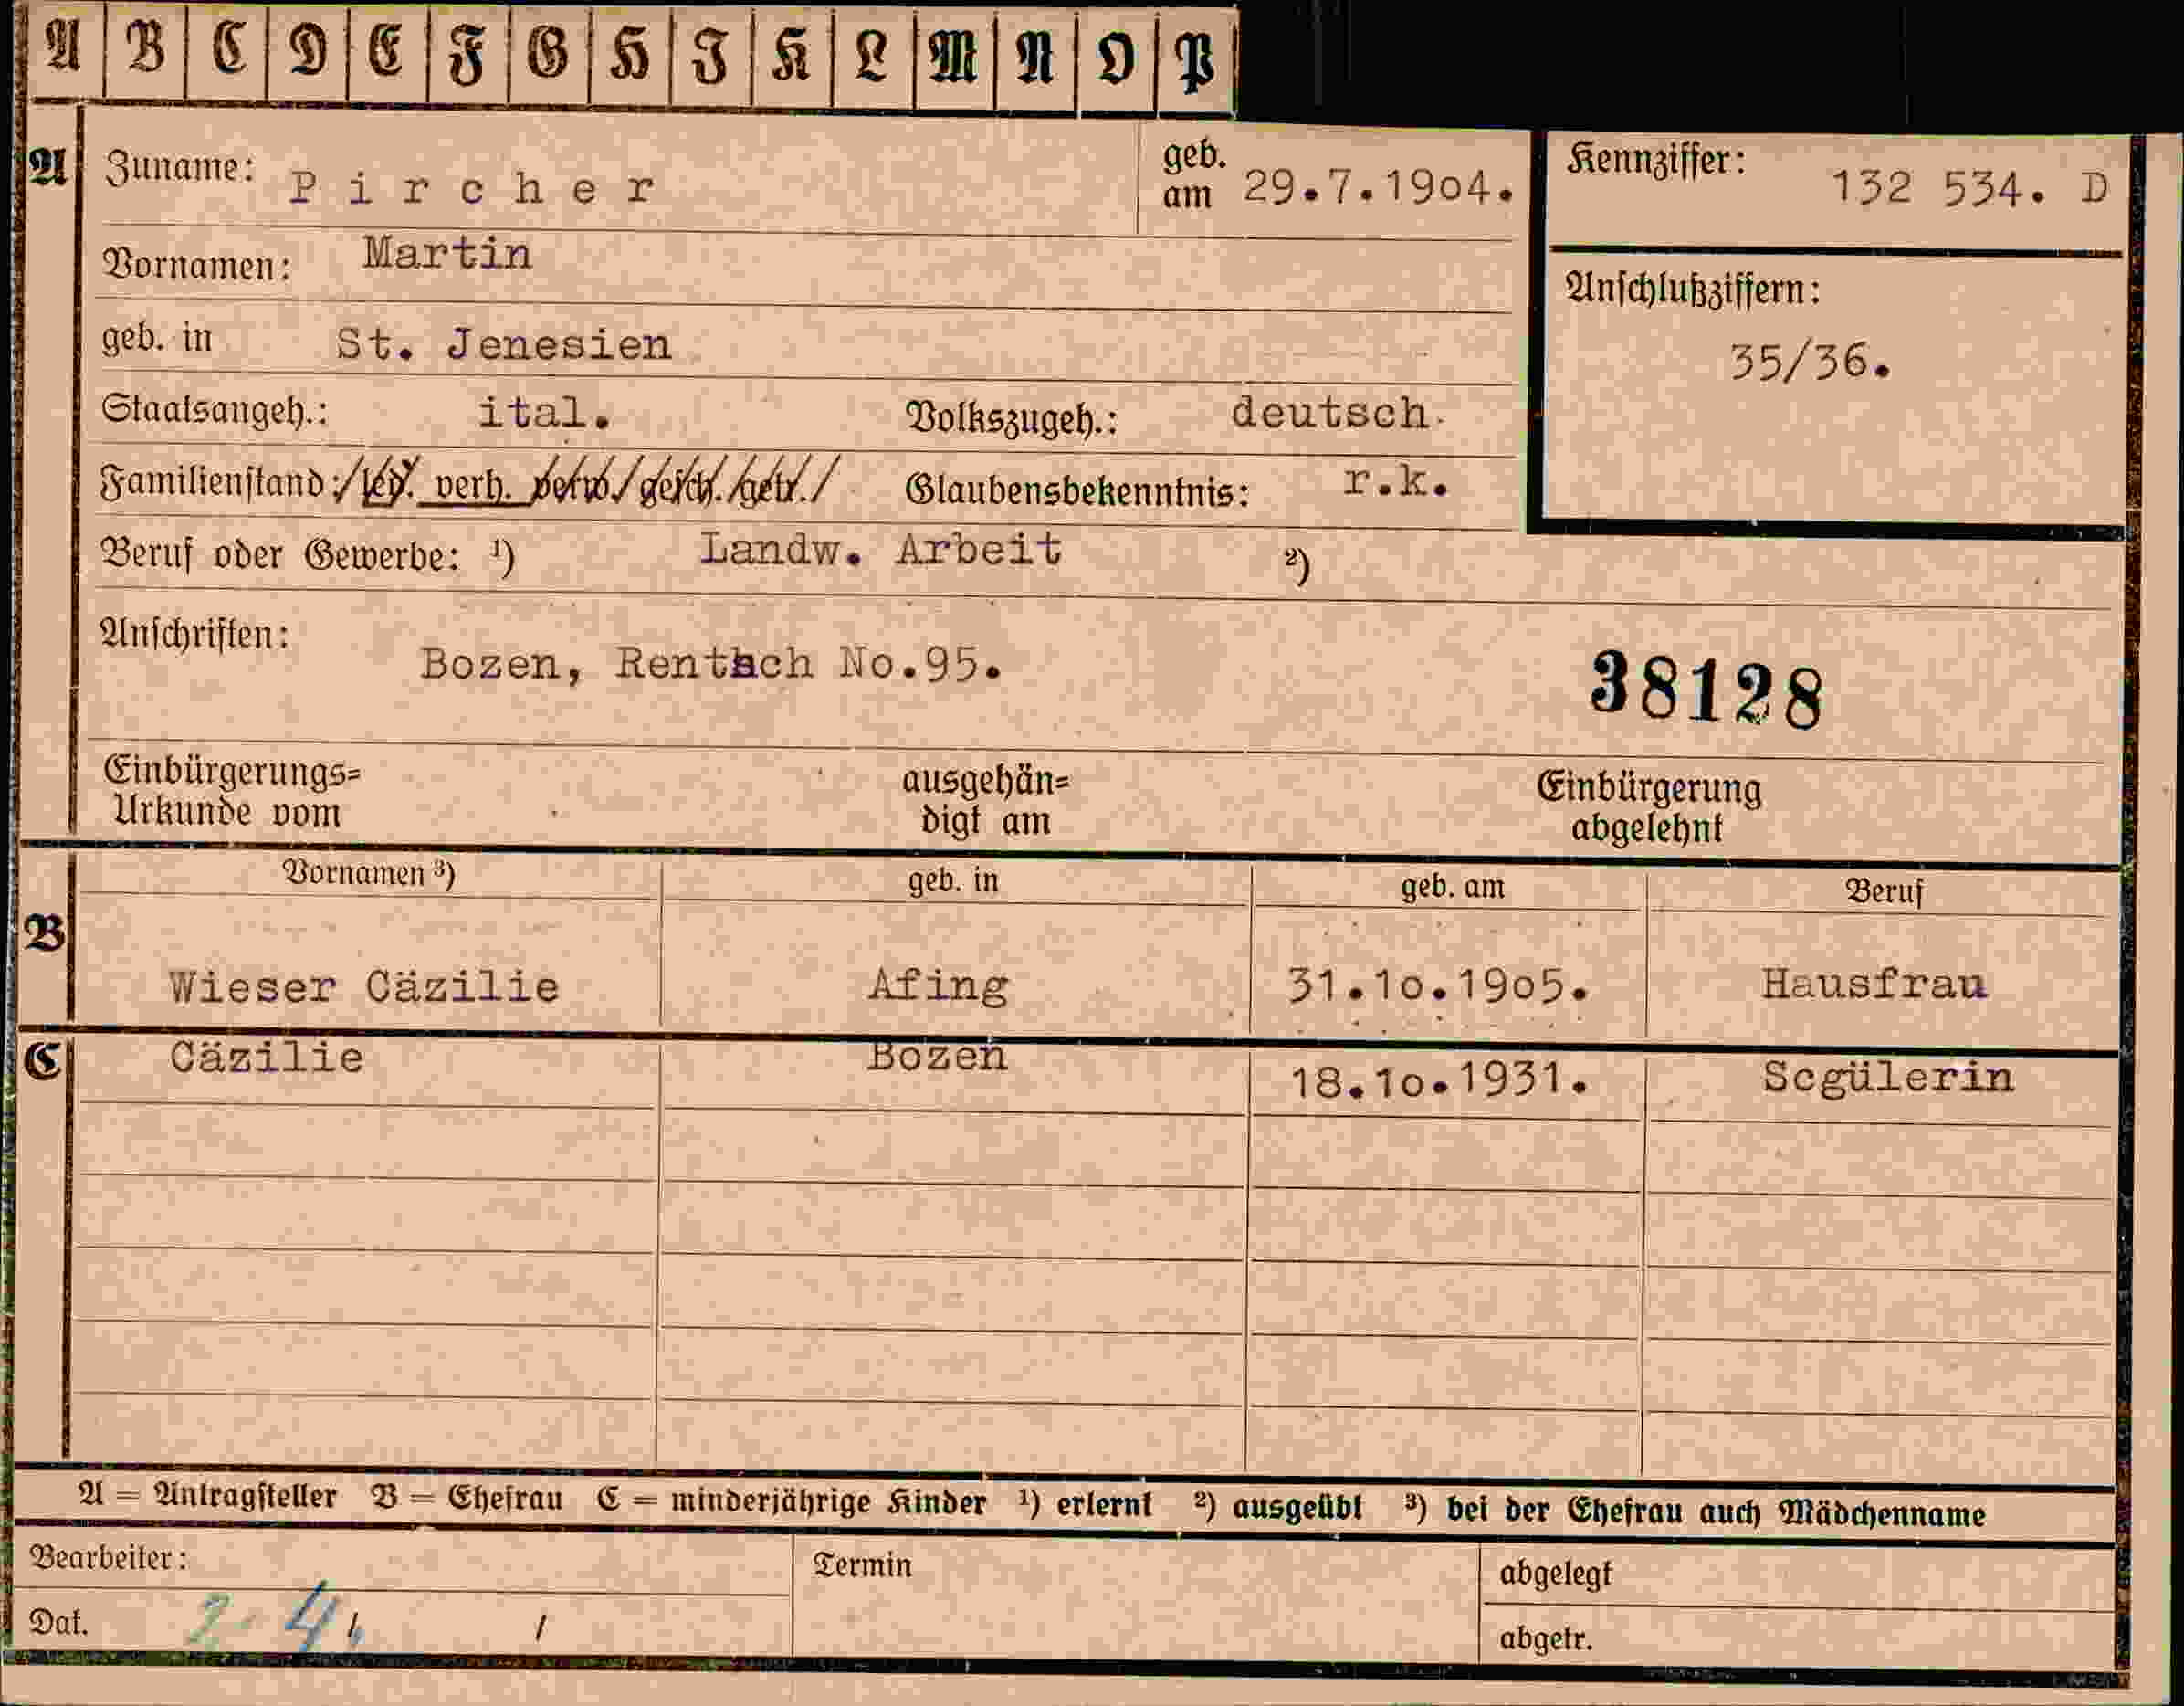 A B C D E F G H I K L M N O P
A Zuname: Pircher geb. am 29.7.1904. Kennziffer: 132 534. D
Vornamen: Martin
geb. in St. Jenesien
Anschlußziffern:
35/36.
Staatsangeh.: ital. Volkszugeh.: deutsch.
Familienstand: led. verh. verw. gesch. getr. Glaubensbekenntnis: r.k.
Beruf oder Gewerbe: ¹) Landw. Arbeit ²)
Anschriften: Bozen, Rentsch No.95.
38128
Einbürgerungs= ausgehän= Einbürgerung
Urkunde vom digt am abgelehnt
Vornamen ³) geb. in geb. am Beruf
B Wieser Cäzilie Afing 31.10.1905. Hausfrau
C Cäzilie Bozen 18.10.1931. Scgülerin
A = Antragsteller B = Ehefrau C = minderjährige Kinder ¹) erlernt ²) ausgeübt ³) bei der Ehefrau auch Mädchenname
Bearbeiter: Termin abgelegt
Dat. 2. 4. abgetr.